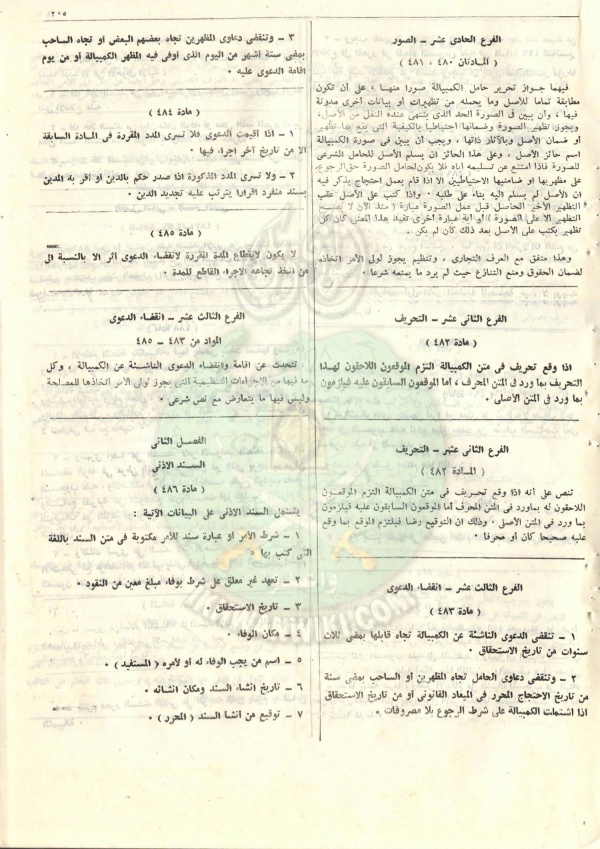 ٢٠٥
الفرع الحادى عشر ــ الصور
( المادتان ٤٨٠ ، ٤٨١ )
فيهما جواز تحرير حامل الكمبيالة صورا منهـا ، على أن تكون
مطابقة تماما للأصل وما يحمله من تظهيرات أو بيانات أخرى مدونة
فيها ، وان يبين فى الصورة الحد الذى ينتهى عنده النقل من الأصل،
ويجوز تظهير الصورة وضمانها احتياطيا بالكيفية التى يقع بها تظهير
أو ضمان الأصل وبالآثار ذاتها ، ويجب ان يبين فى صورة الكمبيالة
اسم حائز الأصل ، وعلى هذا الحائز ان يسلم الأصل للحامل الشرعى
للصورة فاذا امتنع عن تسليمه اياه فلا يكون لحامل الصورة حق الرجوع،
على مظهريها او ضامنيها الاحتياطيين الا اذا قام بعمل احتجاج يذكر فيه
ان الأصل لم يسلم اليه بناء على طلبه ٠ واذا كتب على الأصل عقب
التظهير الأخير الحاصل قبل عمل الصورة عبارة ( منذ الآن لا يصـح
التظهير الا على الصورة ) او اية عبارة اخرى تفيد هذا المعنى كان كل
تظهير يكتب على الأصل بعد ذلك كان لم يكن ٠
وهذا متفق مع العرف التجارى ، وتنظيم يجوز لولى الأمر اتخاذه
لضمان الحقوق ومنع التنازع حيث لم يرد ما يمنعه شرعا ٠
الفرع الثانى عشر ــ التحريف
( مادة ٤٨٢ )
اذا وقع تحريف فى متن الكمبيالة التزم الموقعون اللاحقون لهـذا
التحريف بما ورد فى المتن المحرف ، أما الموقعون السابقون عليه فيلزمون
بما ورد فى المتن الأصلى ٠
الفرع الثانى عشر ــ التحريف
( المـادة ٤٨٢ )
تنص على أنه اذا وقع تحـريف فى متن الكمبيالة التزم الموقعـون
اللاحقون له بماورد فى المتن المحرف أما الموقعون السابقون عليه فيلزمون
بما ورد فى المتن الأصل ، وذلك ان التوقيع رضا فيلتزم الموقع بما وقع
عليه صحيحا كان أو محرفا ٠
الفرع الثالث عشر ــ انقضاء الدعوى
( مادة ٤٨٣ )
١ ــ تنقضى الدعوى الناشئة عن الكمبيالة تجاه قابلها بمضى ثلاث
سنوات من تاريخ الاستحقاق ٠
٢ ــ وتنقضى دعاوى الحامل تجاه المظهرين أو الساحب بمضى سنة
من تاريخ الاحتجاج المحرر فى الميعاد القانونى أو من تاريخ الاستحقاق
اذا اشتملت الكمبيالة على شرط الرجوع بلا مصروفات ٠
٣ ــ وتنقضى دعاوى المظهرين تجاه بعضهم البعض أو تجاه الساحب
بمضى ستة أشهر من اليوم الذى أوفى فيه المظهر الكمبيالة أو من يوم
اقامة الدعوى عليه ٠
( مادة ٤٨٤ )
١ ــ اذا أقيمت الدعوى فلا تسرى المدد المقررة فى المـادة السابقة
الا من تاريخ آخر اجراء فيها ٠
٢ ــ ولا تسرى المدد المذكورة اذا صدر حكم بالدين أو أقر به المدين
بسند منفرد اقرارا يترتب عليه تجديد الدين ٠
( مادة ٤٨٥ )
لا يكون لانقطاع المدة المقررة لانقضاء الدعوى أثر الا بالنسبة الى
من اتخذ تجاهه الاجراء القاطع للمدة ٠
الفرع الثالث عشر ــ انقضاء الدعوى
المواد من ٤٨٣ ــ ٤٨٥
تتحدث عن اقامة وانقضاء الدعوى الناشـئة عن الكمبيالة ، وكل
ما فيها من الاجراءات التنظيمية التى يجوز لولى الأمر اتخاذها للمصلحة
وليس فيها ما يتعارض مع نص شرعى ٠
الفصـل الثانى
السـند الاذنى
( مادة ٤٨٦ )
يشتمل السند الاذنى على البيانات الآتية :
١ ــ شرط الأمر أو عبارة سند للأمر مكتوبة فى متن السند باللغة
التى كتب بها ٠
٢ ــ تعهد غير معلق على شرط بوفاء مبلغ معين من النقود ٠
٣ ــ تاريخ الاستحقاق ٠
٤ ــ مكان الوفاء ٠
٥ ــ اسم من يجب الوفاء له أو لأمره ( المستفيد ) ٠
٦ ــ تاريخ انشاء السند ومكان انشائه ٠
٧ ــ توقيع من أنشأ السند ( المحرر ) ٠
IKHWANWIKI.COM